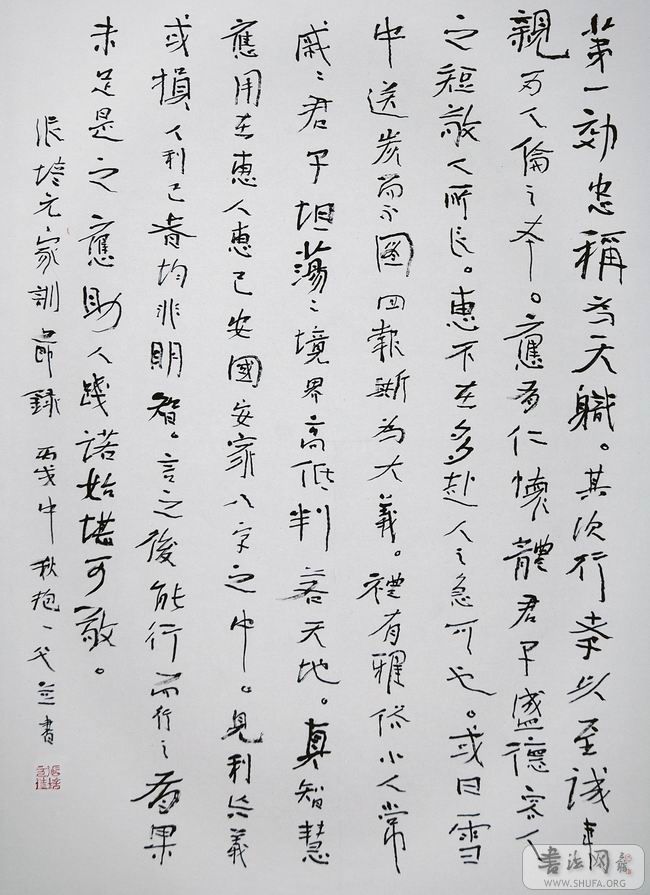 第一効忠稱为天職。其次行孝以至誠事
親为人倫之本。應有仁懷體君子盛德容人
之短敬人所長。惠不在多赴人之急可也。或曰雪
中送炭而不圖回報斯為大義。禮有雅俗小人常
戚〻君子坦蕩〻境界高低判若天地。真智慧
應用在惠人惠己安國安家八字之中。見利忘義
或損人利己者均非明智。言之後能行而行之有果
未足是之應助人踐諾始堪可敬。
張培元家訓節錄 丙戌中秋抱一 書
書法网
WWW.SHUFA.ORG